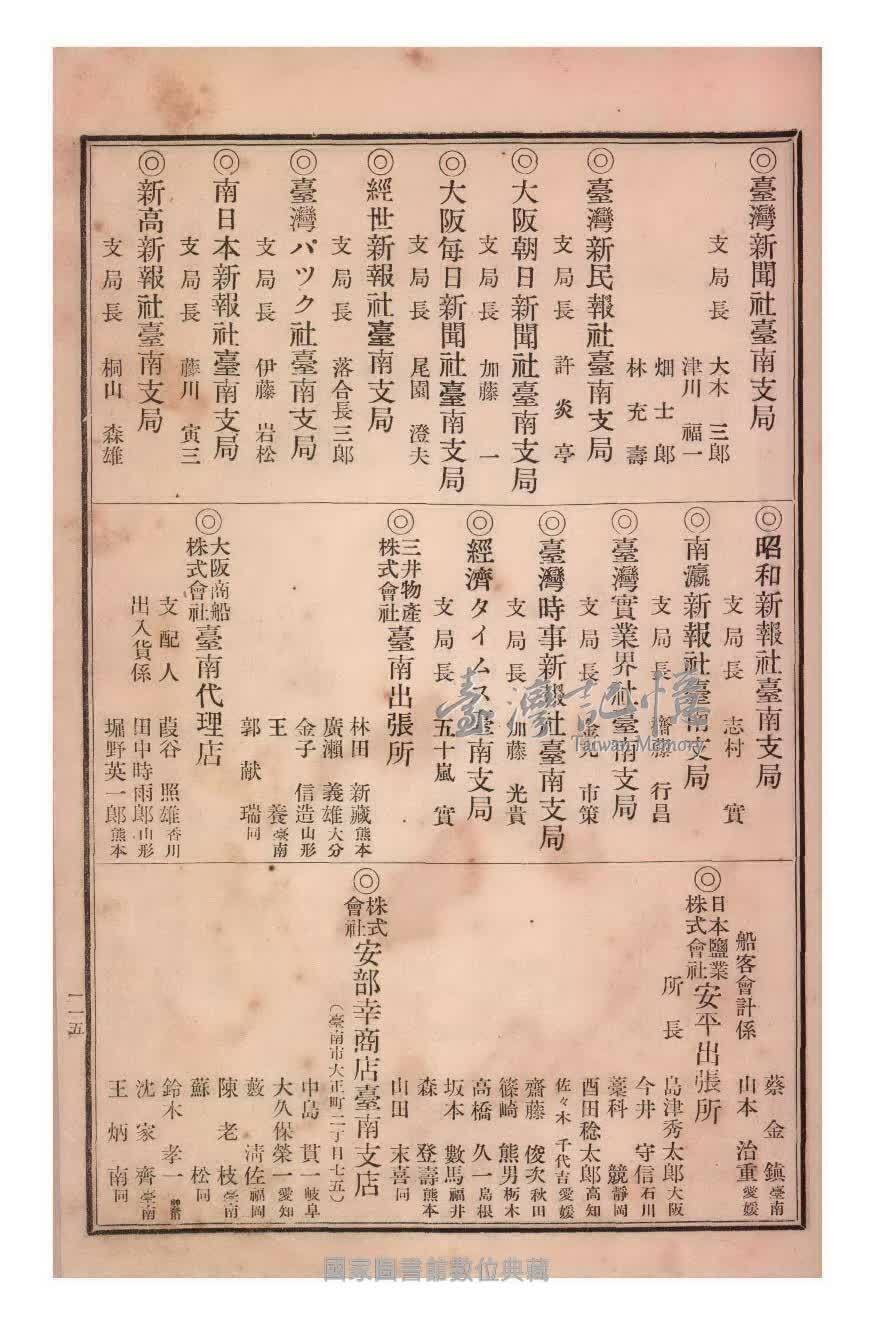 ◎臺灣新聞社臺南支局
支局長 大木 三郎
津川 福一
畑 士郎
林 充壽
◎臺灣新民報社臺南支局
支局長 許炎亭
◎大阪朝日新聞社臺南支局
支局長 加藤 一
◎大阪每日新聞社臺南支局
支局長 尾園 澄夫
◎經世新報社臺南支局
支局長 落合長三郎
◎臺灣パツク社臺南支局
支局長 伊藤 岩松
◎南日本新報社臺南支局
支局長 藤川 寅三
◎新高新報社臺南支局
支局長 桐山 森雄
◎昭和新報社臺南支局
支局長 志村 實
◎南瀛新報社臺南支局
支局長 齋藤 行昌
◎臺灣實業界社臺南支局
支局長 金兒 市策
◎臺灣時事新報社臺南支局
支局長 加藤 光貴
◎經濟タイムス臺南支局
支局長 五十嵐 實
◎三井物產株式會社臺南出張所
林田 新藏 熊本
廣瀨 義雄 大分
金子 信造 山形
王 養 臺南
郭 献瑞 同
◎大阪商船株式會社臺南代理店
支配人 葭谷 照雄 香川
出入貨係 田中時雨郎 山形
堀野英一郎 熊本
蔡金鎮 臺南
船客會計係 山本 治重 愛媛
◎日本鹽業株式會社安平出張所
所長 島津秀太郎 大阪
今井 守信 石川
藁科 競 靜岡
酉田稔太郎 高知
佐々木 千代吉 愛媛
齋藤 俊次 秋田
篠崎 熊男 栃木
高橋 久一 島根
坂本 數馬 福井
森 登壽 熊本
山田 末喜 同
◎株式會社安部幸商店臺南支店
(臺南市大正町二丁目七五)
中島 貫一 岐阜
大久保榮一 愛知
藪 淸佐 福岡
陳老枝 臺南
蘇 松 同
鈴木 孝一
沈家齊 臺南
王炳南 同
一一五
臺灣記憶
Taiwan Memory
國家圖書館數位典藏